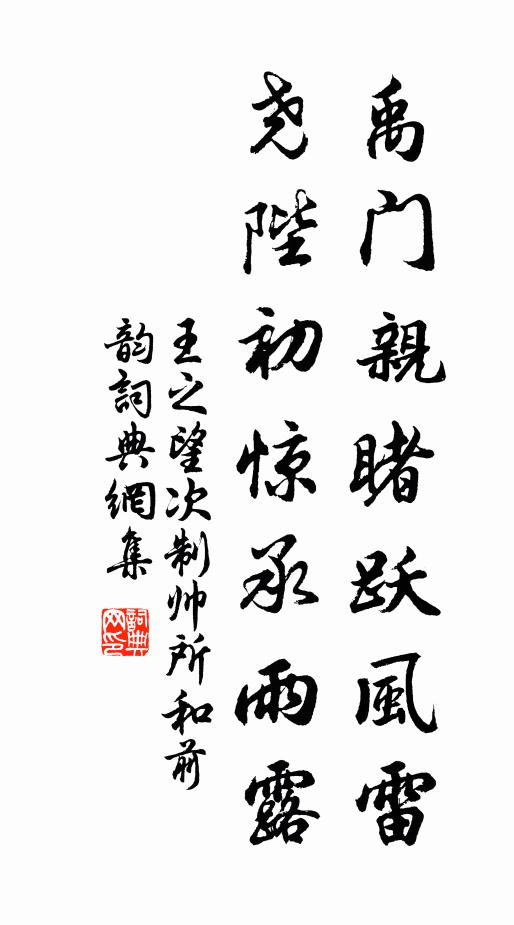 禹门親睹跃風雷
尧陛初惊承雨露
王之望次制帅所和前
韵詞典網集
詞典
网印